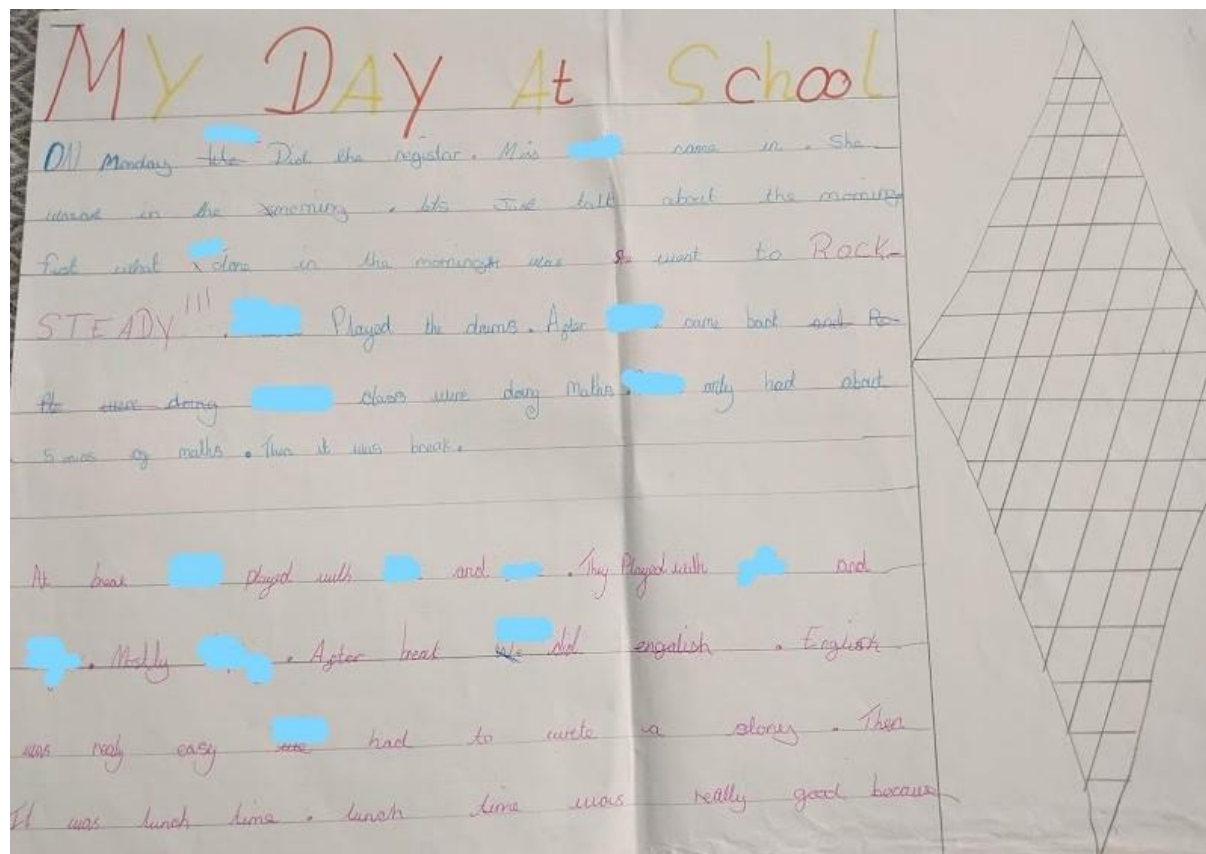 MY DAY At School
ON Monday Did the registar. Miss came in. She
in the morning. lets Just talk about the morning
first what done in the morning was went to ROCK-
STEADY!!! . Played the drums. After came back and
were doing class were doing maths. only had about
5 mins of maths. Then it was break.
At break played with and . They Played with and
. Mostly . After break did engalish. English
was realy easy had to wrete a story. Then
It was lunch time. lunch time was really good because